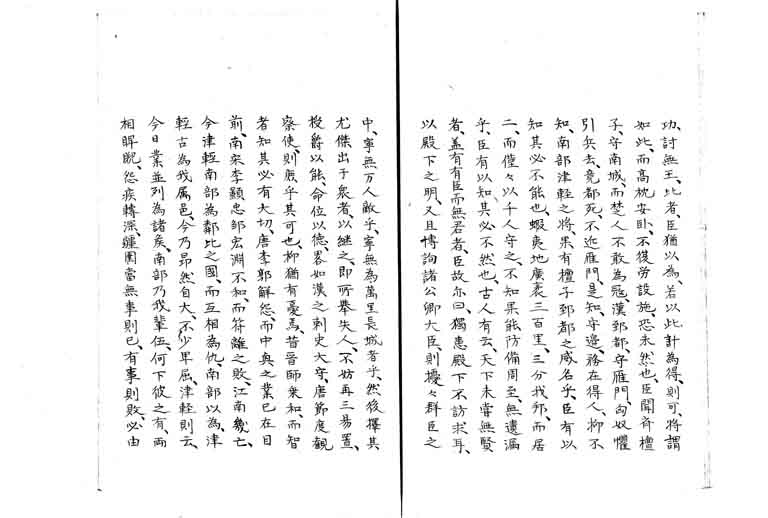 功、討無王、此者、臣猶以為、若以此計為得、則可、将謂
如此、而高枕安卧、不復労設施、恐未然也、臣聞斉檀
子、守南城、而楚人不敢為冦、漢郅都守雁門、匈奴懼
引兵去、竟都死、不近雁門、是知、守邊、務在得人、抑不
知、南部津軽之将、果有檀子郅都之威名乎、臣有以
知其必不能也、蝦夷地廣袤三百里、三分我邦、而居
二、而僅々以千人守之、不知果能防備周至、無遺漏
乎、臣有以知、其必不然也、古人有云、天下未嘗無賢
者、蓋有有臣而無君者、臣故尓曰、獨患殿下不訪求耳、
以殿下之明、又且博詢諸公卿大臣、則擾々群臣之
中、寧無万人敵乎、寧無為萬里長城者乎、然後擇其
尤傑出于衆者、以継之、即所舉失人、不妨再三易置、
授爵以能、命位以徳、畧如漢之刺史大守、唐節度観
察使、則庶乎其可也、抑猶有憂焉、昔晉師乗和、而智
者知其必有大切、唐李郭解怨、而中興之業已在目
前、南宋李顕忠邵宏淵不和、而符離之敗、江南幾亡、
今津軽南部為鄰比之國、而互相為仇、南部以為、津
軽古為我属邑、今乃昂然自大、不少卑屈、津軽則云、
今日業並列為諸矦、南部乃我輩伍、何下彼之有、両
相睥睨、怨疾轉深、纏團當無事則已、有事則敗、必由